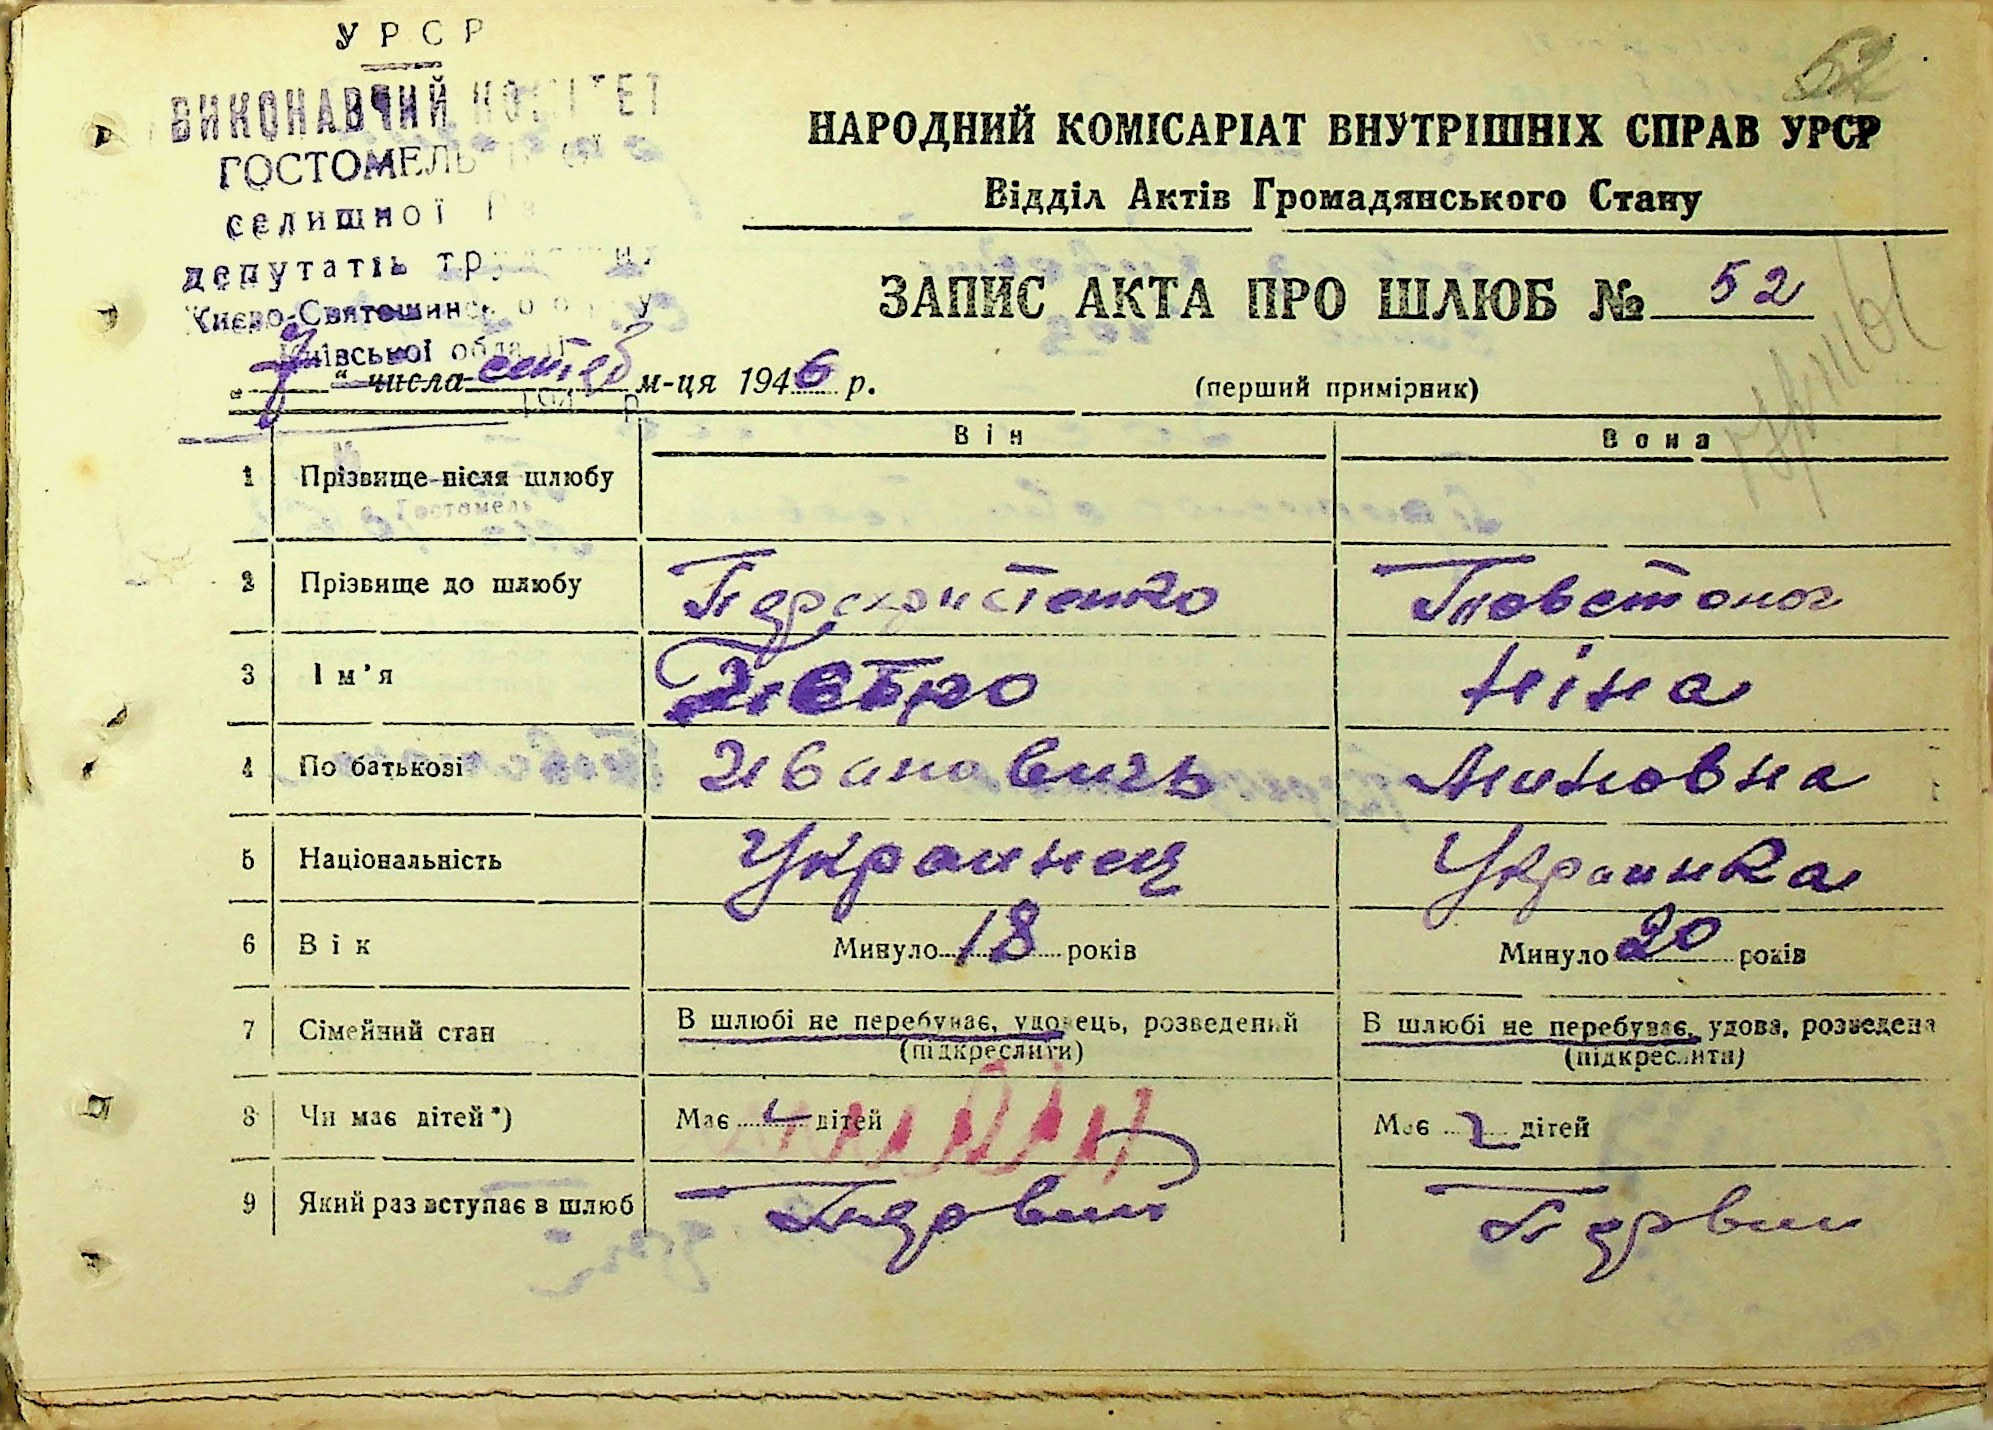 УРСР
ВИКОНАВЧИЙ КОМІТЕТ
ГОСТОМЕЛЬ
селищної
депутатів
Києво-Святошинс
Київської обл
52
НАРОДНИЙ КОМІСАРІАТ ВНУТРІШНІХ СПРАВ УРСР
Відділ Актів Громадянського Стану
ЗАПИС АКТА ПРО ШЛЮБ № 52
„ 7 “ числа сентеб м-ця 1946 р.
(перший примірник)
Він Вона
1 Прізвище після шлюбу
Гостомель
2 Прізвище до шлюбу Товстоног
3 Ім’я Петро Ніна
4 По батькові Ивановичь Миновна
5 Національність Украинец Украинка
6 Вік Минуло 18 років Минуло 20 років
7 Сімейний стан В шлюбі не перебуває, удовець, розведений В шлюбі не перебуває, удова, розведена
(підкреслити) (підкреслити)
8 Чи має дітей*) Має дітей Має дітей
9 Який раз вступає в шлюб Пєрвий Пєрвий